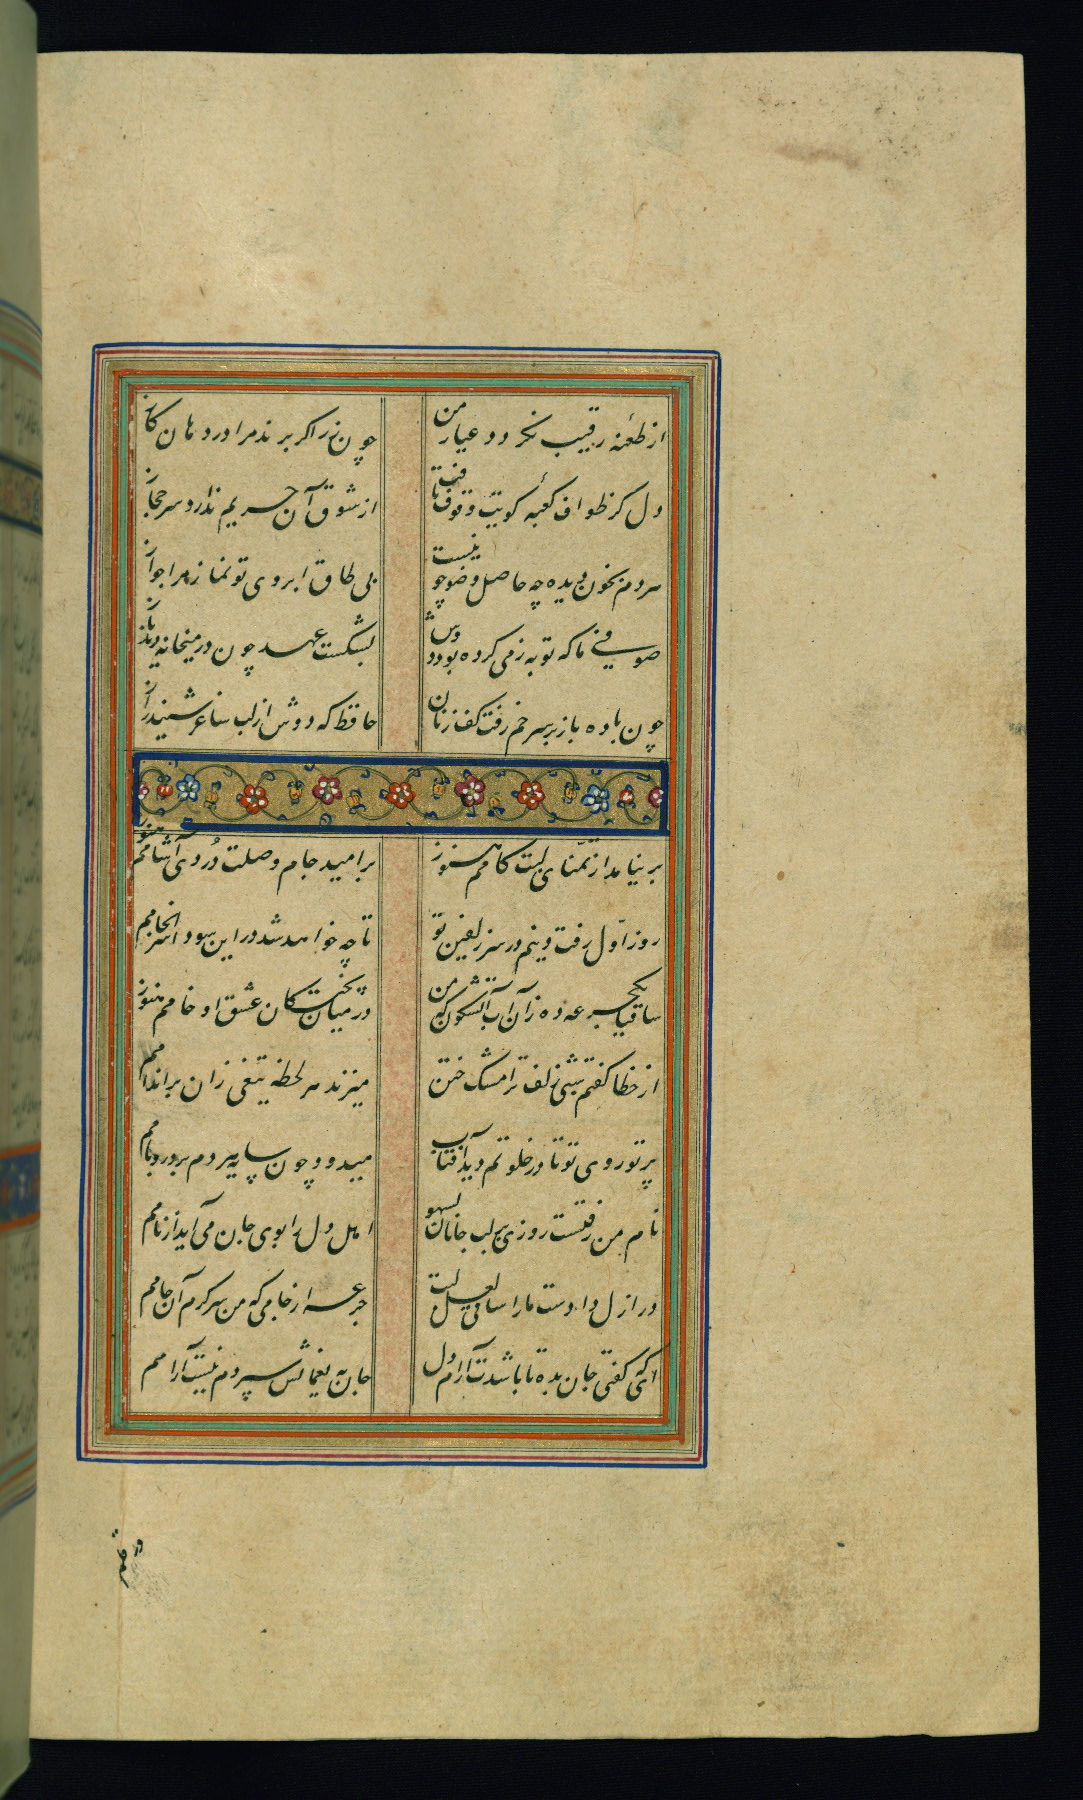 از طعنه رقیب نکردد عیار من چون زر اکر برند مرا در دهان کاز
دل کز طواف کعبه کویت وقوف یافت از شوق آن حریم ندارد سر حجاز
هر دم بخون دیده چه حاصل وضو چو نیست بی طاق ابروی تو نماز مرا جواز
صوفی ما که توبه ز می کرده بود دوش بشکست عهد چون در میخانه دید باز
چون باده باز بر سر خم رفت کف زنان حافظ که دوش از لب ساغر شنید راز
بر نیامد از تمنای لبت کامم هنوز بر امید جام وصلت دردی آشامم هنوز
روز اول رفت دینم در سر زلفین تو تا چه خواهد شد در این سودا سرانجامم
ساقیا یکجرعه ده زآن آب آتشکون که من در میان پختکان عشق او خامم هنوز
از خطا کفتم شبی زلف ترا مشک ختن میزند هر لحظه تیغی زان بر اندامم
پرتو روی تو تا در خلوتم دید آفتاب میدود چون سایه هر دم بر در و بامم
نام من رفتست روزی بر لب جانان بسهو اهل دل را بوی جان می آید از نامم
در ازل دادست ما را ساقی لعل لبت جرعه از جامی که من سرکرم آن جامم
ای که کفتی جان بده تا باشدت آرام دل جان به یغمائش سپردم نیست آرامم